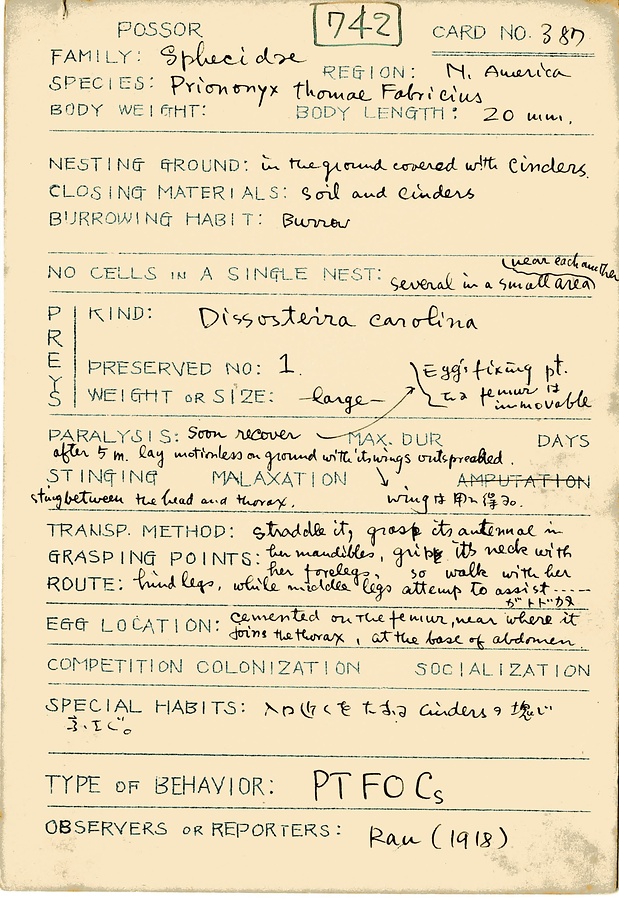 POSSOR 742 CARD NO. 387
FAMILY: Sphecidae
REGION: N. America
SPECIES: Prionyx thomae Fabricius
BODY WEIGHT: BODY LENGTH: 20 mm.
NESTING GROUND: in the ground covered with Cinders.
CLOSING MATERIALS: Soil and Cinders
BURROWING HABIT: Burrow
NO CELLS IN A SINGLE NEST: several in a small area (near each another)
PREYS
KIND: Dissosteira carolina
PRESERVED NO: 1.
WEIGHT OR SIZE: -large-
Egg's fixing pt.
femur は
immovable
PARALYSIS: Soon recover MAX. DUR DAYS
after 5 m. lay motionless on ground with its wings outspreaded.
STINGING MALAXATION AMPUTATION
sting between the head and thorax. wing は
TRANSP. METHOD: straddle it, grasp its antennal in
GRASPING POINTS: her mandibles, gripe its neck with
her forelegs, so walk with her
ROUTE: hind legs, while middle legs attemp to assist-----
EGG LOCATION: cemented on the femur, near where it
joins the thorax, at the base of abdomen.
COMPETITION COLONIZATION SOCIALIZATION
SPECIAL HABITS: 入口 cinders の塊い
ふさぐ。
TYPE OF BEHAVIOR: PTFOCs
OBSERVERS OR REPORTERS: Rau (1918)